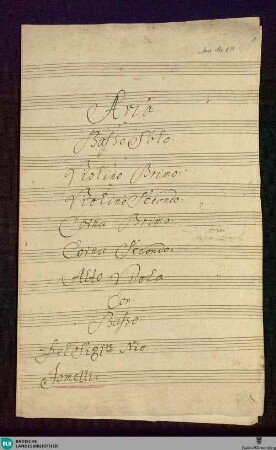 Aria
a
Basso Solo.
Violino Primo.
Violino Secondo.
Cornu Primo.
Cornu Secondo.
Alto Viola
Con
Basso
Del Sig:re Nic
Jomelli.
BLB
BADISCHE
LANDESBIBLIOTHEK